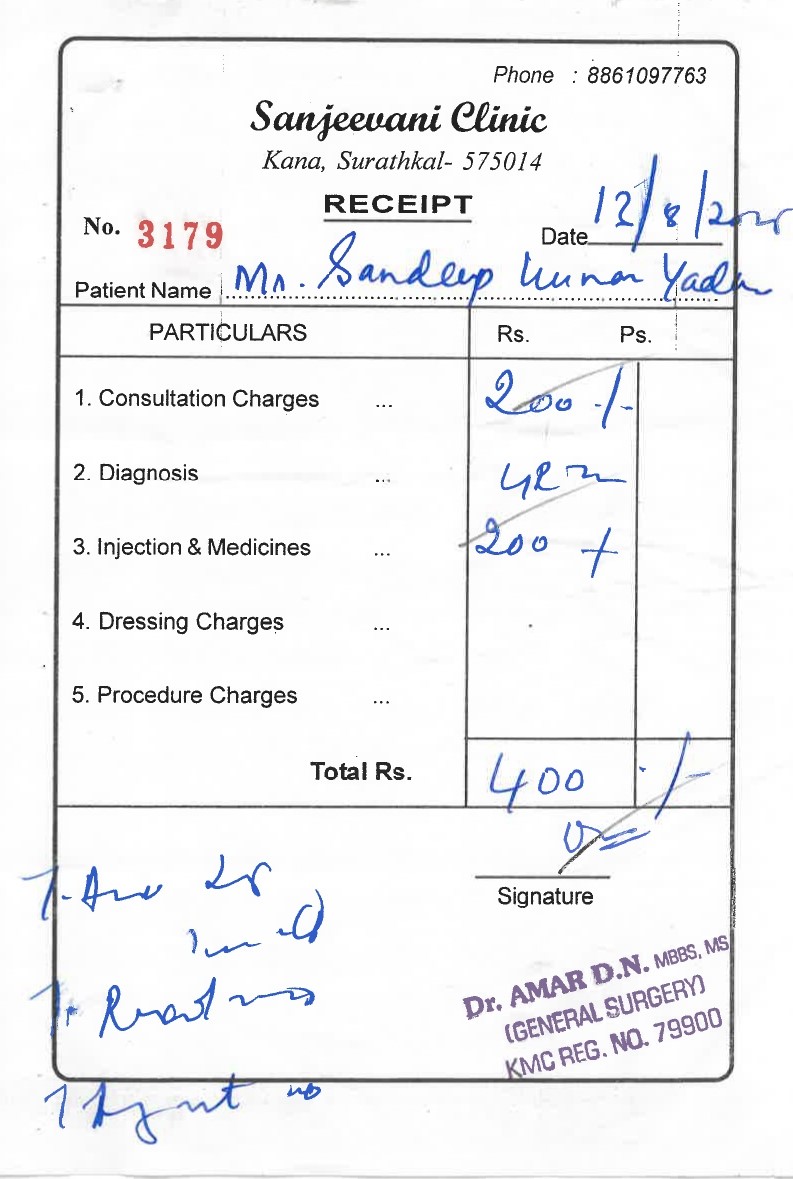 Phone : 8861097763
Sanjeevani Clinic
Kana, Surathkal- 575014
RECEIPT
No. 3179
Date 12/8/2025
Patient Name Mr. Sandeep Kumar Yadav
PARTICULARS Rs. Ps.
1. Consultation Charges ... 200 /-
2. Diagnosis ...
3. Injection & Medicines ... 200 /-
4. Dressing Charges ...
5. Procedure Charges ...
Total Rs. 400 /-
Signature
Dr. AMAR D.N. MBBS, MS
(GENERAL SURGERY)
KMC REG. NO. 79900